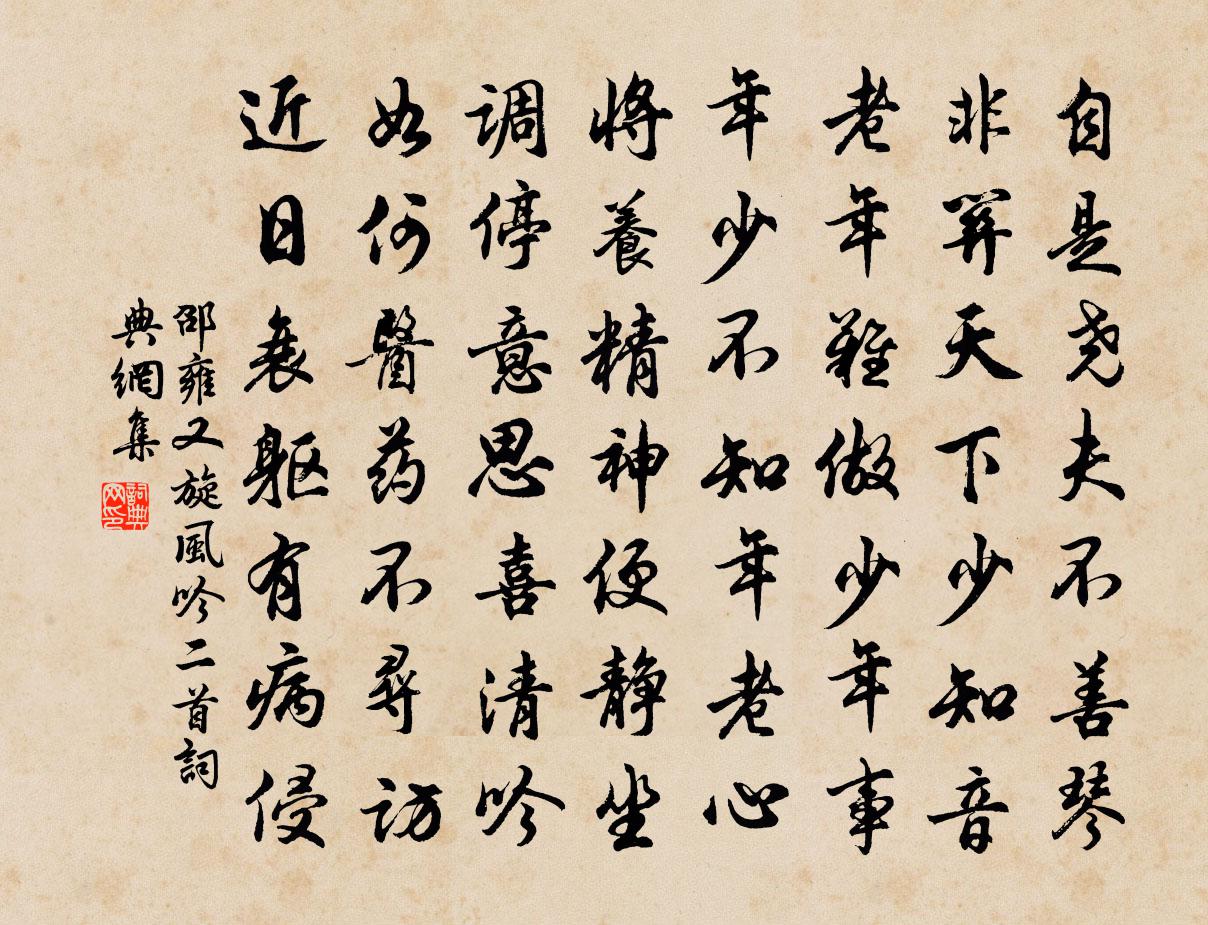 自是尧夫不善琴
非关天下少知音
老年难做少年事
年少不知年老心
将養精神便静坐
调停意思喜清吟
如何醫药不尋访
近日衰躯有病侵
邵雍又旋風吟二首詞
典網集
詞典网印